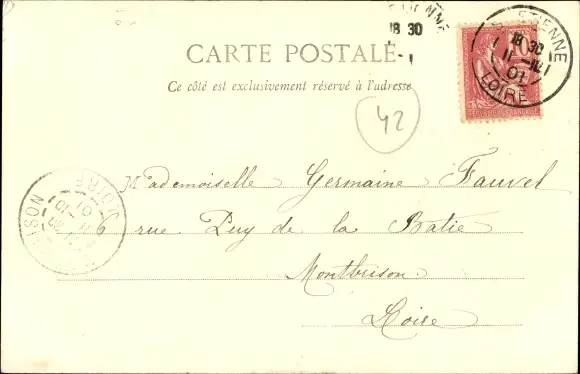 ETIENNE
18 30
CARTE POSTALE
Ce côté est exclusivement réservé à l'adresse
ETIENNE
18 30
11 - 10
01
LOIRE
42
Mademoiselle Germaine Fauvel
6 rue Puy de la Batie
Montbrison
Loire
LOIRE
11 - 10
01